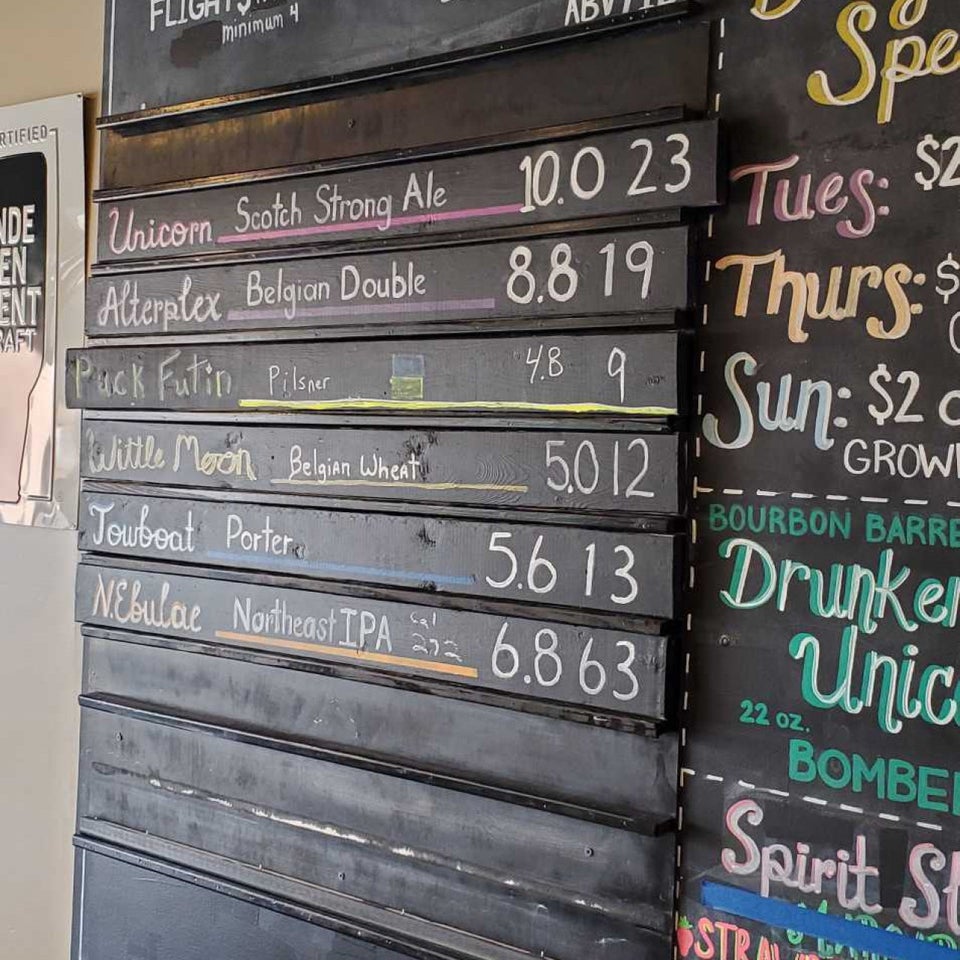 FLIGHTS
minimum 4
RTIFIED
NDE
EN
ENT
RAFT
Unicorn Scotch Strong Ale 10.0 23
Alterplex Belgian Double 8.8 19
Puck Futin Pilsner 4.8 9
Wittle Moon Belgian Wheat 5.0 12
Towboat Porter 5.6 13
N.Ebulae Northeast IPA Cal 272 6.8 63
Spe
Tues: $2
Thurs: $
Sun: $2 o
GROW
BOURBON BARRE
Drunken
Unic
22 oz.
BOMBE
Spirit St
STRA